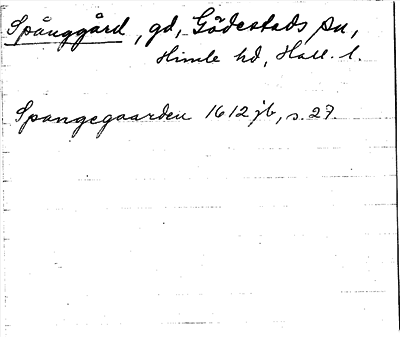 Spånggård, gd, Gödestads sn,
Himle hd, Hall. l.
Spangegaarden 1612 jb, s. 27.